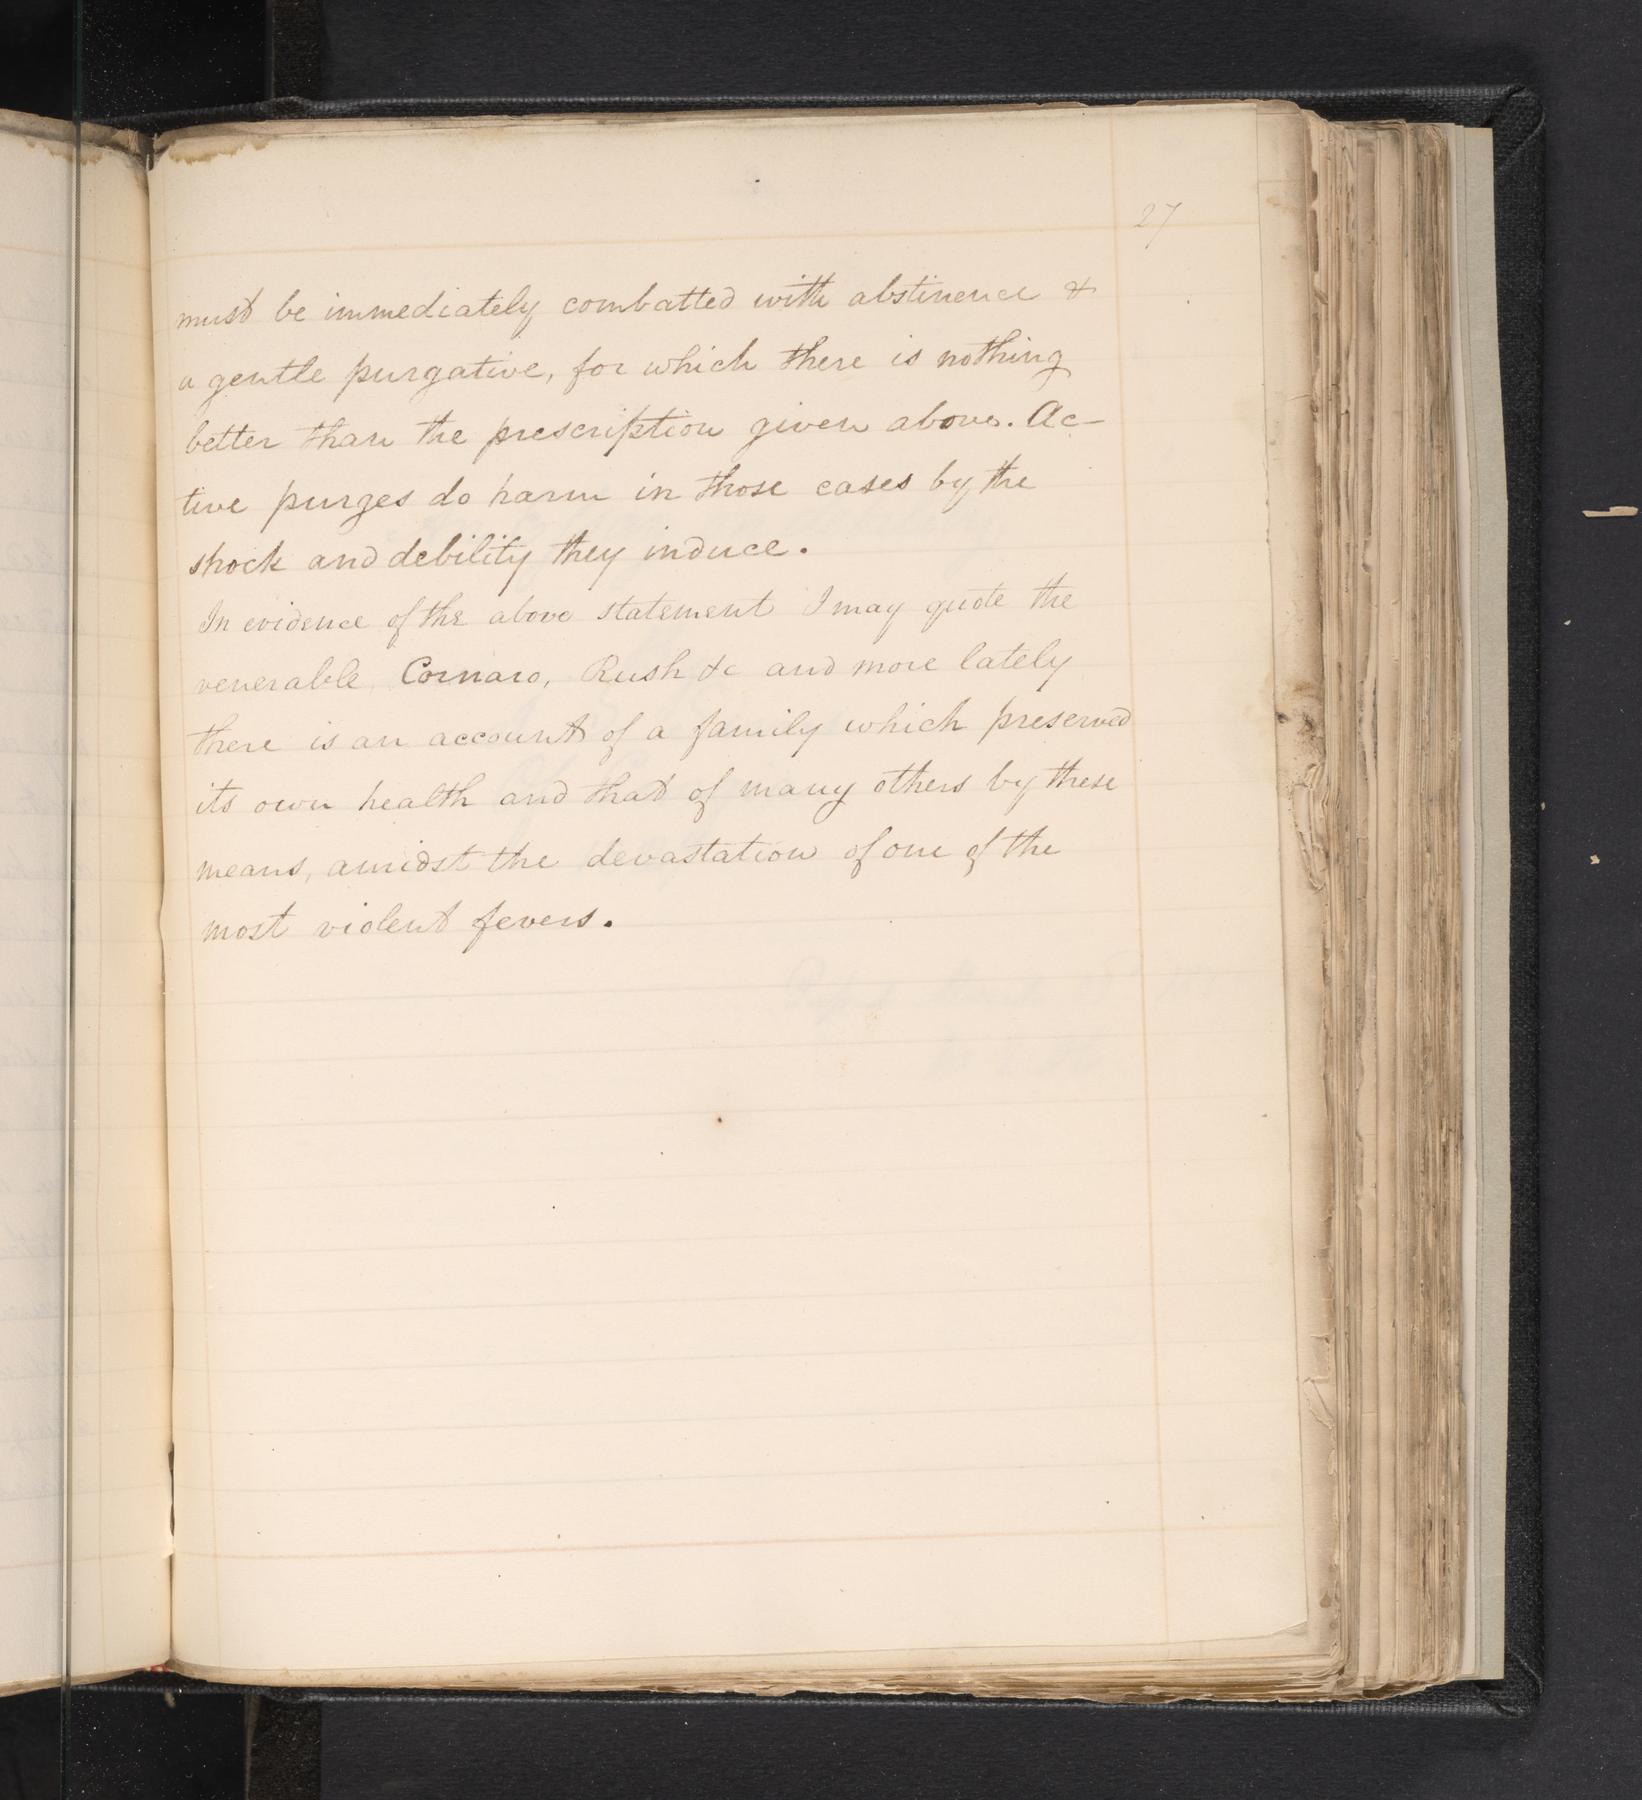 27
must be immediately combatted with abstinence &
a gentle purgative, for which there is nothing
better than the prescription given above. Ac-
tive purges do harm in those cases by the
shock and debility they induce.
In evidence of the above statement I may quote the
venerable Cornaro, Rush &c and more lately
there is an account of a family which preserved
its own health and that of many others by these
means, amidst the devastation of one of the
most violent fevers.